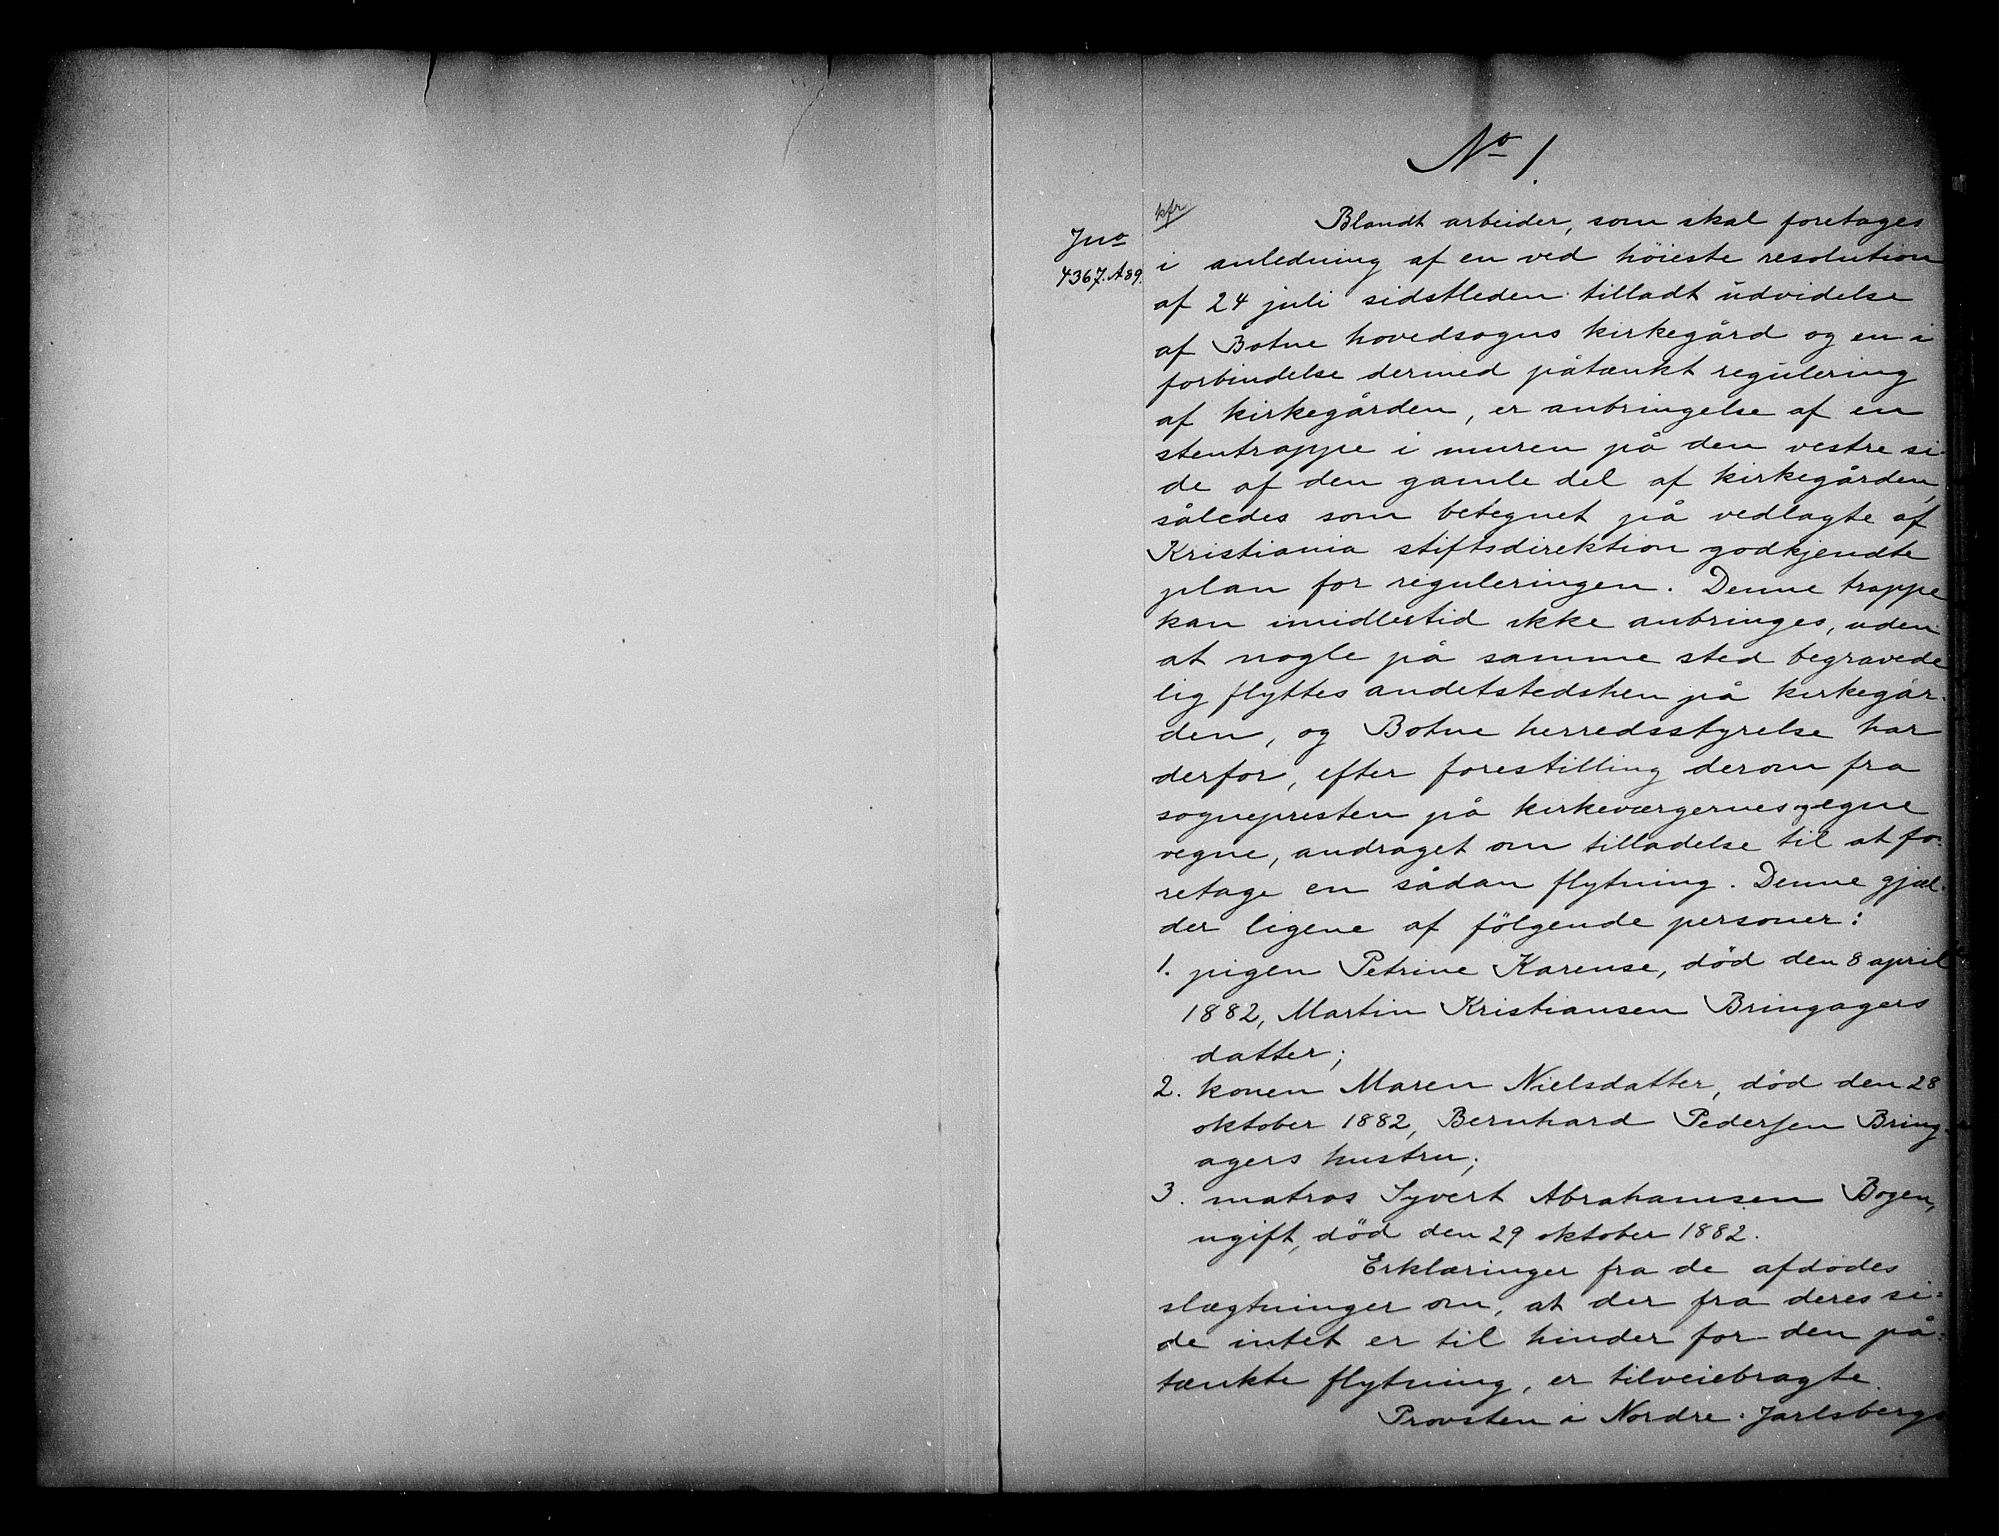 No 1.
kfr
Jno
4367. A 89.
Blandt arbeider, som skal foretages
i anledning af en ved höieste resolution
af 24 juli sidstleden tilladt udvidelse
af Botne hovedsogns kirkegård og en i
forbindelse dermed påtænkt regulering
af kirkegården, er anbringelse af en
stentrappe i muren på den vestre si-
de af den gamle del af kirkegården,
således som betegnet på vedlagte af
Kristiania stiftsdirektion godkjendte
plan for reguleringen. Denne trappe
kan imidlertid ikke anbringes, uden
at nogle på samme sted begravede
lig flyttes andetstedshen på kirkegår-
den, og Botne herredsstyrelse har
derfor, efter forestilling derom fra
sognepresten på kirkeværgernes og egne
vegne, andraget om tilladelse til at fo-
retage en sådan flytning. Denne gjæl-
der ligene af fölgende personer:
1. pigen Petrine Karense, död den 8 april
1882, Martin Kristiansen Bringagers
datter;
2. konen Maren Nielsdatter, död den 28
oktober 1882, Bernhard Pedersen Bring-
agers hustru;
3. matros Syvert Abrahamsen Bogen,
ugift, död den 29 oktober 1882.
Erklæringer fra de afdödes
slægtninger om, at der fra deres si-
de intet er til hinder for den på-
tænkte flytning, er tilveiebragte.
Provsten i Nordre Jarlsbergs